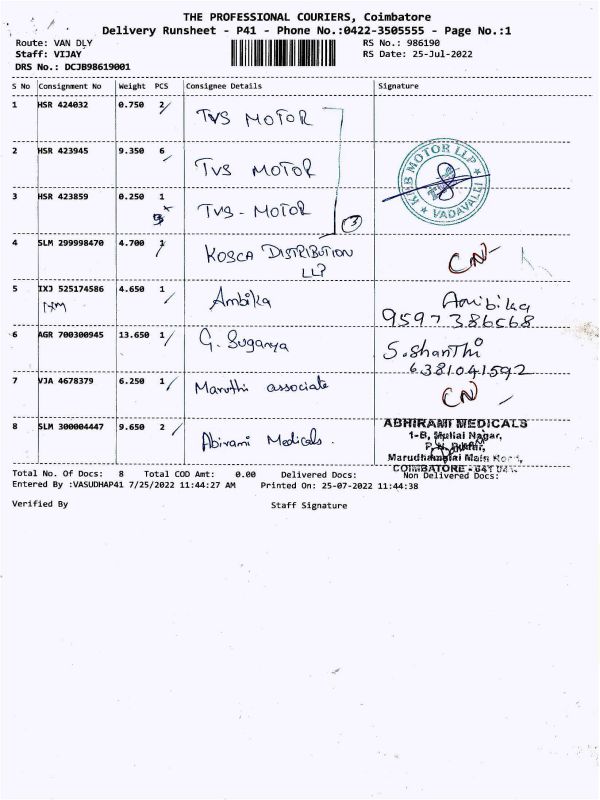 THE PROFESSIONAL COURIERS, Coimbatore
Delivery Runsheet - P41 - Phone No.:0422-3505555 - Page No.:1
Route: VAN DLY RS No.: 986190
Staff: VIJAY RS Date: 25-Jul-2022
DRS No.: DCJB98619001
S No Consignment No Weight PCS Consignee Details Signature
1 HSR 424032 0.750 2 TVS MOTOR
2 HSR 423945 9.350 6 TVS MOTOR
KVB MOTOR LLP
VADAVALLI
3 HSR 423859 0.250 1 TVS-MOTOR
3
4 SLM 299998470 4.700 1 KOSCA DISTRIBUTION
LLP
CN
5 IXJ 525174586 4.650 1 Ambika Ambika
9597386568
6 AGR 700300945 13.650 1 G. Suganya S.Shanthi
6381041592
7 VJA 4678379 6.250 1 Maruthi associate CN
8 SLM 300004447 9.650 2 Abirami Medicals. ABHIRAMI MEDICALS
1-B, Mullai Nagar,
Marudhamalai Main Road,
COIMBATORE - 641
Total No. Of Docs: 8 Total COD Amt: 0.00 Delivered Docs: Non Delivered Docs:
Entered By :VASUDHAP41 7/25/2022 11:44:27 AM Printed On: 25-07-2022 11:44:38
Verified By Staff Signature